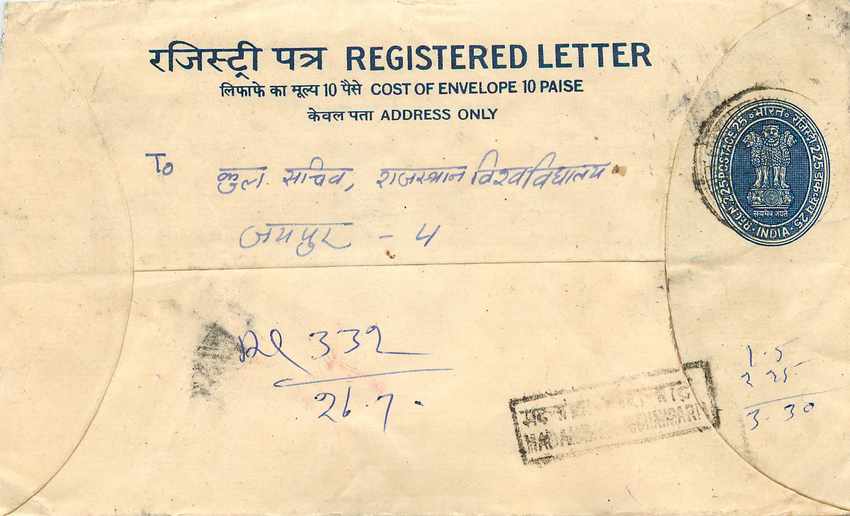 रजिस्ट्री पत्र REGISTERED LETTER
लिफाफे का मूल्य 10 पैसे COST OF ENVELOPE 10 PAISE
केवल पता ADDRESS ONLY
To कुल सचिव, राजस्थान विश्वविद्यालय
जयपुर - 4
भारत रजिस्ट्री 225 डाकव्यय 25
REGN 225 POSTAGE 25
INDIA
सत्यमेव जयते
332
26.7.
1.5
2 25
3.30